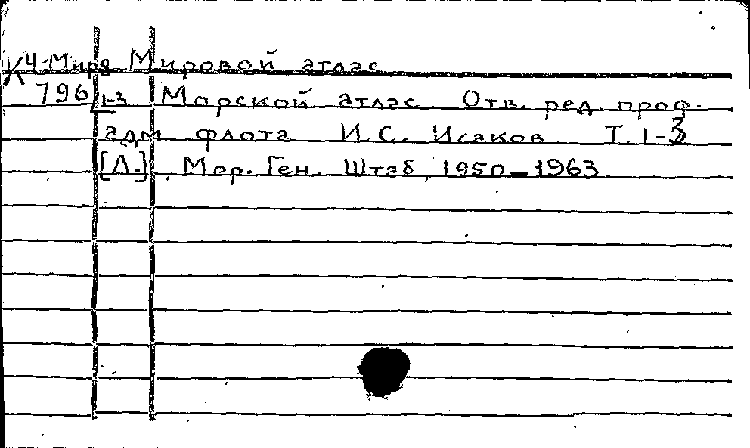 К4-Мира Мировой атлас
796/1-3 Морской атлас Отв. ред. проф.
адм флота И.С. Исаков Т. 1-3
[Л.], Мор. Ген. Штаб, 1950-1963.